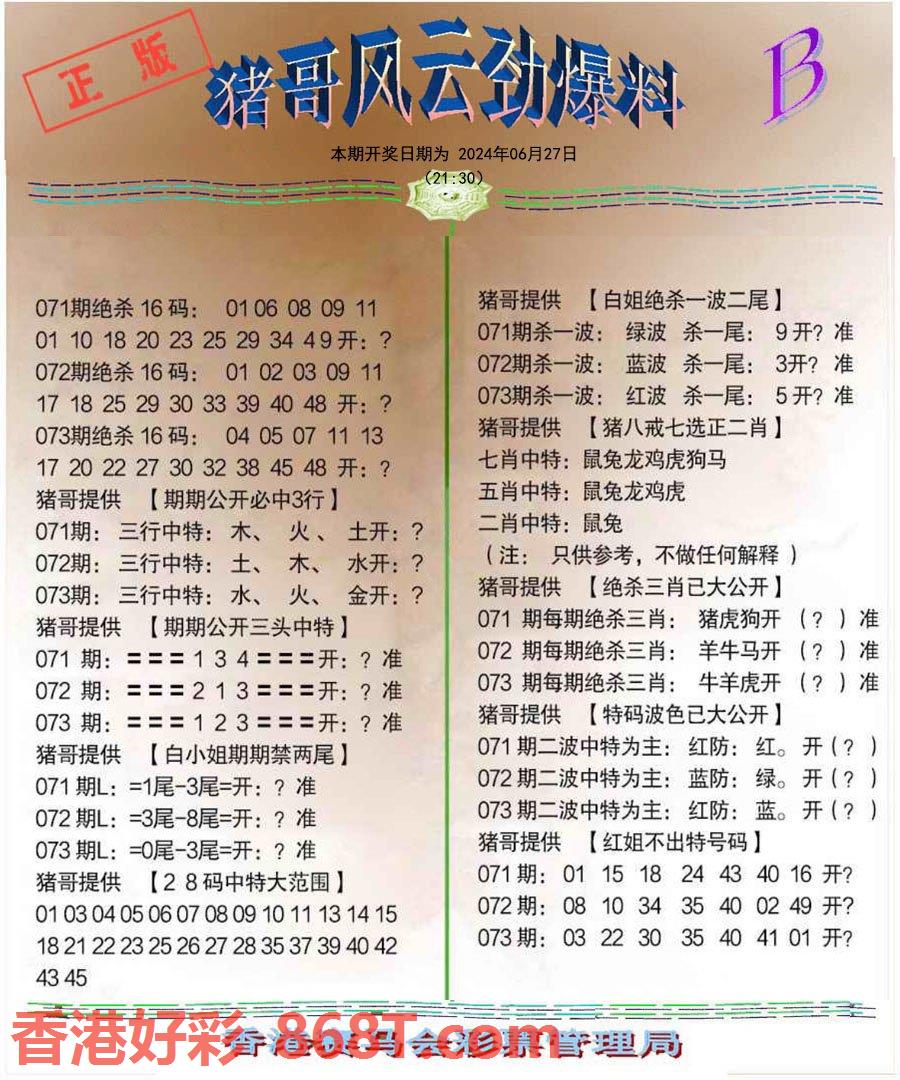 正版
猪哥风云劲爆料
B
本期开奖日期为 2024年06月27日
(21:30)
071期绝杀16码： 01 06 08 09 11
01 10 18 20 23 25 29 34 49 开：?
072期绝杀16码： 01 02 03 09 11
17 18 25 29 30 33 39 40 48 开：?
073期绝杀16码： 04 05 07 11 13
17 20 22 27 30 32 38 45 48 开：?
猪哥提供 【期期公开必中3行】
071期： 三行中特： 木、 火、 土开：?
072期： 三行中特： 土、 木、 水开：?
073期： 三行中特： 水、 火、 金开：?
猪哥提供 【期期公开三头中特】
071 期：===134===开：? 准
072 期：===213===开：? 准
073 期：===123===开：? 准
猪哥提供 【白小姐期期禁两尾】
071期L：=1尾-3尾=开：? 准
072期L：=3尾-8尾=开：? 准
073期L：=0尾-3尾=开：? 准
猪哥提供 【28码中特大范围】
01 03 04 05 06 07 08 09 10 11 13 14 15
18 21 22 23 25 26 27 28 35 37 39 40 42
43 45
猪哥提供 【白姐绝杀一波二尾】
071期杀一波： 绿波 杀一尾： 9开? 准
072期杀一波： 蓝波 杀一尾： 3开? 准
073期杀一波： 红波 杀一尾： 5开? 准
猪哥提供 【猪八戒七选正二肖】
七肖中特：鼠兔龙鸡虎狗马
五肖中特：鼠兔龙鸡虎
二肖中特：鼠兔
（注： 只供参考，不做任何解释）
猪哥提供 【绝杀三肖已大公开】
071 期每期绝杀三肖： 猪虎狗开 （?）准
072 期每期绝杀三肖： 羊牛马开 （?）准
073 期每期绝杀三肖： 牛羊虎开 （?）准
猪哥提供 【特码波色已大公开】
071期二波中特为主：红防：红。开（?）
072期二波中特为主：蓝防：绿。开（?）
073期二波中特为主：红防：蓝。开（?）
猪哥提供 【红姐不出特号码】
071期： 01 15 18 24 43 40 16 开?
072期： 08 10 34 35 40 02 49 开?
073期： 03 22 30 35 40 41 01 开?
香港好彩-868T.com
香港赛马会彩票管理局